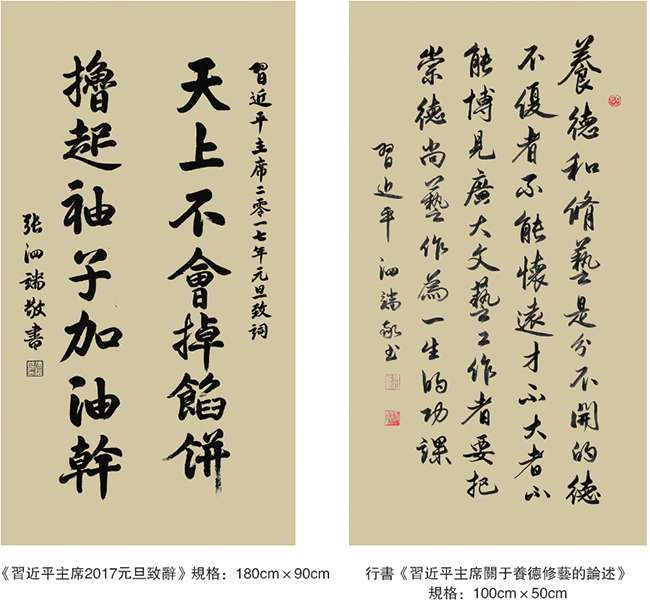 習近平主席二零一七年元旦致詞
天上不會掉餡餅
擼起袖子加油幹
张泗端敬書
養德和脩藝是分不開的德
不優者不能懷遠才不大者不
能博見廣大文藝工作者要把
崇德尚藝作為一生的功課
習近平 泗端敬书
《習近平主席2017元旦致辭》規格：180cm×90cm
行書《習近平主席關于養德修藝的論述》
規格：100cm×50cm